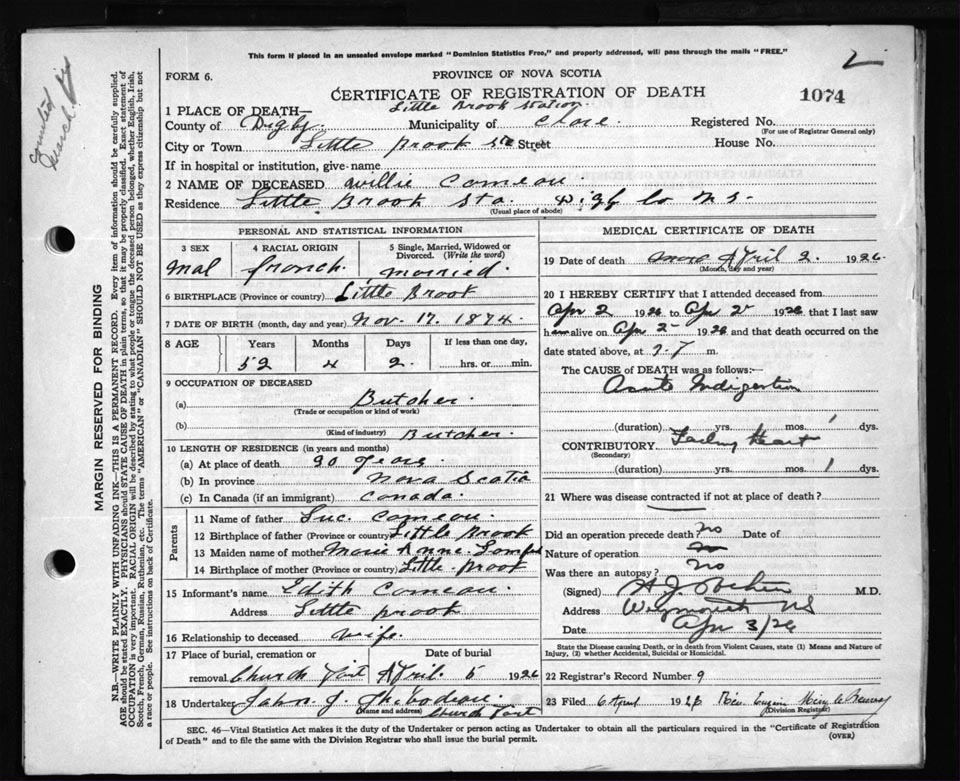 This form if placed in an unsealed envelope marked "Dominion Statistics Free," and properly addressed, will pass through the mails "FREE."
2
FORM 6.
PROVINCE OF NOVA SCOTIA
CERTIFICATE OF REGISTRATION OF DEATH
1074
1 PLACE OF DEATH— Little Brook Station
County of Digby Municipality of Clare Registered No.
(For use of Registrar General only)
City or Town Little Brook Sta Street House No.
If in hospital or institution, give name
2 NAME OF DECEASED Willie Comeau
Residence Little Brook Sta. Digby Co N S.
(Usual place of abode)
PERSONAL AND STATISTICAL INFORMATION
3 SEX 4 RACIAL ORIGIN 5 Single, Married, Widowed or Divorced. (Write the word)
Mal french. Married.
6 BIRTHPLACE (Province or country) Little Brook
7 DATE OF BIRTH (month, day and year) Nov. 17. 1874.
8 AGE Years Months Days If less than one day,
52 4 2. hrs. or min.
9 OCCUPATION OF DECEASED
(a) Butcher.
(Trade or occupation or kind of work)
(b)
(Kind of industry) Butcher.
10 LENGTH OF RESIDENCE (in years and months)
(a) At place of death years
(b) In province Nova Scotia
(c) In Canada (if an immigrant) Canada.
Parents
11 Name of father Luc. Comeau.
12 Birthplace of father (Province or country) Little Brook
13 Maiden name of mother Marie Anne
14 Birthplace of mother (Province or country) Little Brook
15 Informant's name Edith Comeau
Address Little Brook
16 Relationship to deceased Wife.
17 Place of burial, cremation or Date of burial
removal Church Point April 5 1926
18 Undertaker John J. Thibodeau
(Name and address) Church Point
MEDICAL CERTIFICATE OF DEATH
19 Date of death April 2. 1926
(Month, day and year)
20 I HEREBY CERTIFY that I attended deceased from
Apr 2 1926 to Apr 2 1926 that I last saw
h alive on Apr 2- 1926 and that death occurred on
date stated above, at m.
The CAUSE OF DEATH was as follows:—
Acute Indigestion
(duration) yrs. mos. 1 dys.
CONTRIBUTORY Failing Heart
(Secondary)
(duration) yrs. mos. 1 dys.
21 Where was disease contracted if not at place of death?
Did an operation precede death? no Date of
Nature of operation no
Was there an autopsy? no
(Signed) M.D.
Address Weymouth NS
Date Apr 3/26
State the Disease causing Death, or in death from Violent Causes, state (1) Means and Nature of Injury, (2) whether Accidental, Suicidal or Homicidal.
22 Registrar's Record Number 9
23 Filed 6 April 1926
(Division Registrar)
SEC. 46—Vital Statistics Act makes it the duty of the Undertaker or person acting as Undertaker to obtain all the particulars required in the "Certificate of Registration
of Death" and to file the same with the Division Registrar who shall issue the burial permit.
(OVER)
MARGIN RESERVED FOR BINDING
N.B.—WRITE PLAINLY WITH UNFADING INK—THIS IS A PERMANENT RECORD. Every item of information should be carefully supplied.
AGE should be stated EXACTLY. PHYSICIANS should STATE CAUSE OF DEATH in plain terms, so that it may be properly classified. Exact statement of
OCCUPATION is very important. RACIAL ORIGIN will be described by stating to what people or tongue the deceased person belonged, whether English, Irish,
Scotch, French, German, Russian, Ruthenian, etc. The terms "AMERICAN" or "CANADIAN" SHOULD NOT BE USED as they express citizenship but not
a race or people. See instructions on back of Certificate.